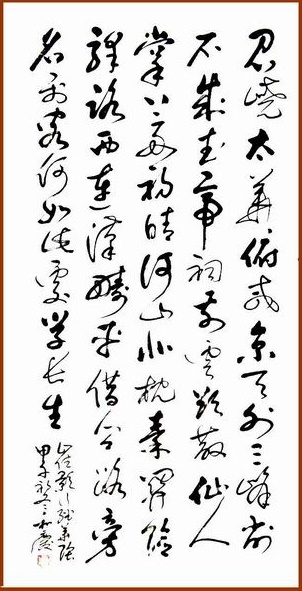 岧嶢太華俯咸京天外三峰削
不成武帝祠前雲欲散仙人
掌上雨初晴河山北枕秦關險
驛路西連漢畤平借問路旁
名利客何如此處學長生
崔颢行經華陰
甲午